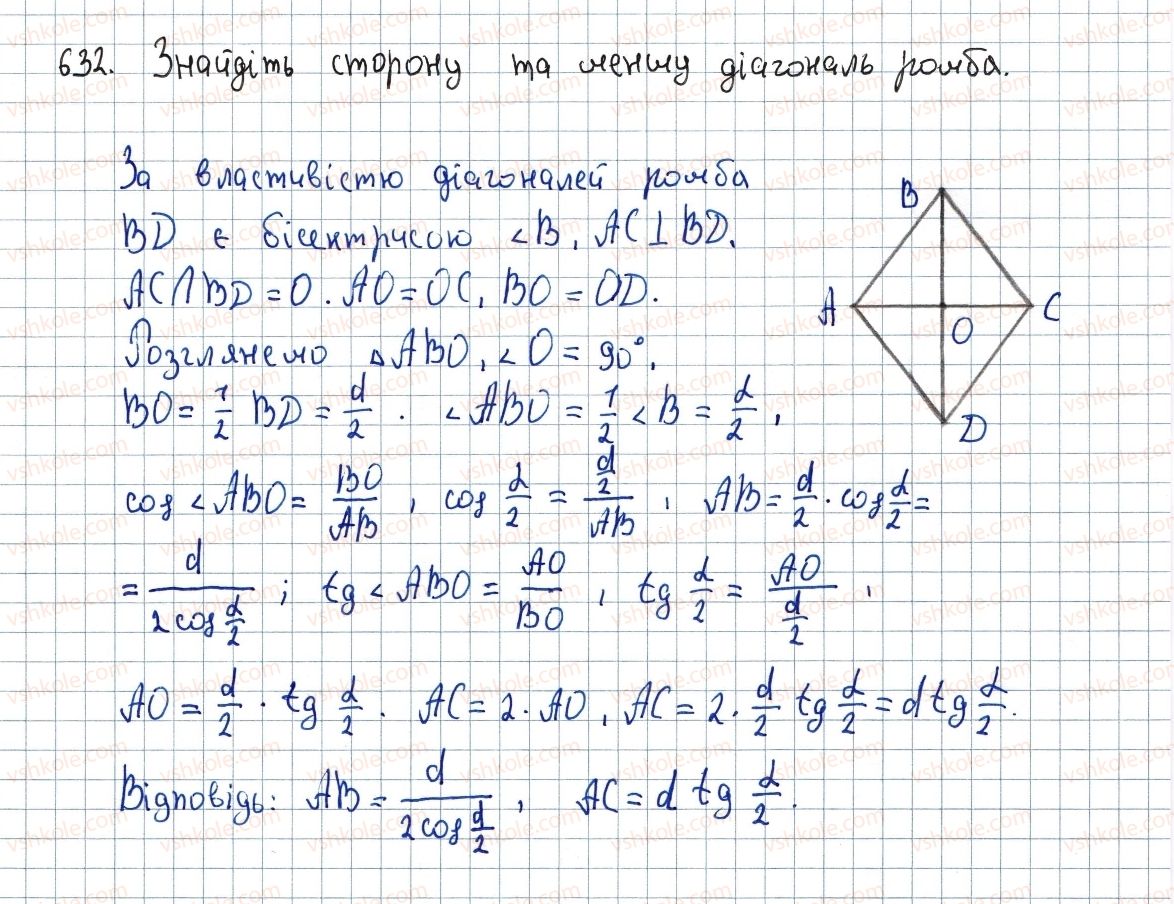 632. Знайдіть сторону та меншу діагональ ромба.
За властивістю діагоналей ромба
BD є бісектрисою ∠B, AC⊥BD.
AC∩BD = O. AO = OC, BO = OD.
Розглянемо △ABO, ∠O = 90°.
BO = 1/2 BD = d/2. ∠ABO = 1/2 ∠B = α/2,
cos ∠ABO = BO/AB, cos α/2 = (d/2)/AB, AB = d/2 · cos α/2 =
= d/(2cos α/2); tg ∠ABO = AO/BO, tg α/2 = AO/(d/2),
AO = d/2 · tg α/2. AC = 2·AO, AC = 2· d/2 tg α/2 = d tg α/2.
Відповідь: AB = d/(2cos α/2), AC = d tg α/2.
B
A
C
O
D